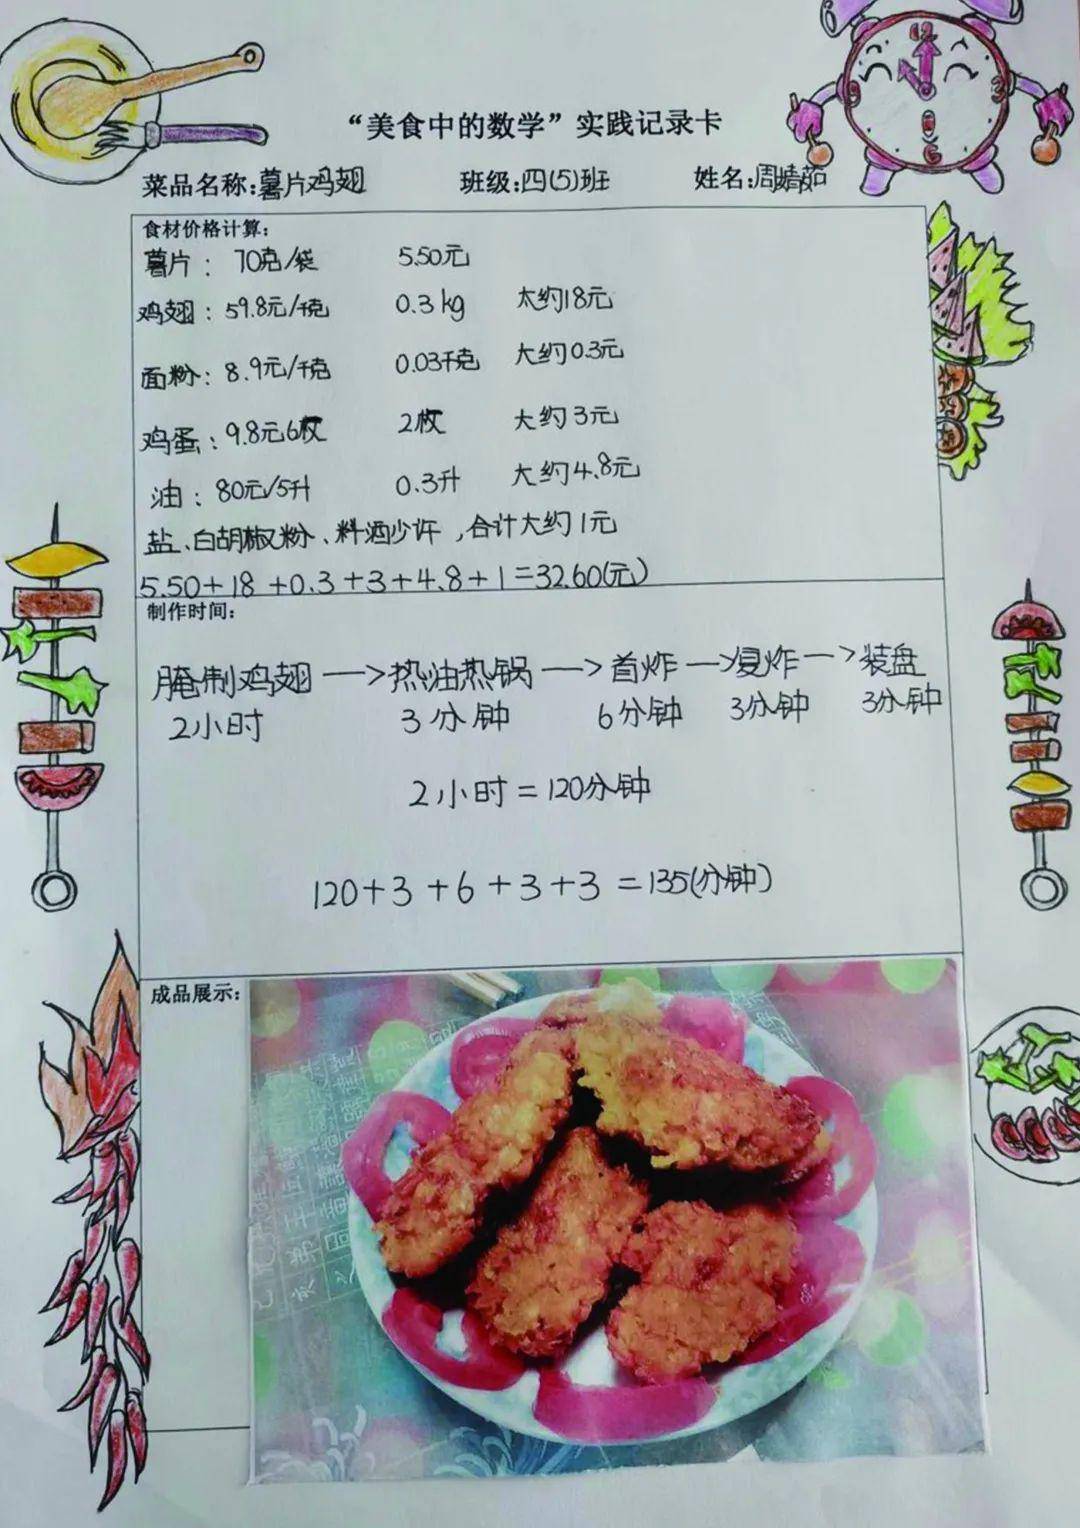 “美食中的数学”实践记录卡
菜品名称:薯片鸡翅 班级:四(5)班 姓名:周婧茹
食材价格计算:
薯片: 70克/袋 5.50元
鸡翅: 59.8元/千克 0.3kg 大约18元
面粉: 8.9元/千克 0.03千克 大约0.3元
鸡蛋: 9.8元6枚 2枚 大约3元
油: 80元/5升 0.3升 大约4.8元
盐、白胡椒粉、料酒少许,合计大约1元
5.50+18+0.3+3+4.8+1=32.60(元)
制作时间:
腌制鸡翅→热油热锅→首炸→复炸→装盘
2小时 3分钟 6分钟 3分钟 3分钟
2小时=120分钟
120+3+6+3+3=135(分钟)
成品展示: